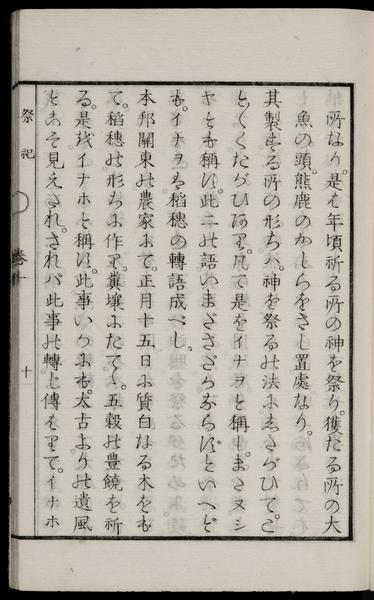 所なり。是は年頃祈る所の神を祭り。獲たる所の大
魚の頭。熊鹿のかしらをさし置處なり。
其製する所の形ちハ。神を祭るの法にしたがひて。こ
とくくたがひあり。凡て是をイナヲと稱し。まさヌシ
ヤとも稱す。此二の語いまださだらならずといへど
も。イナヲは稲穂の轉語成べし。
本邦關東の農家にて。正月十五日に質白なる木をも
て。稲穂の形ちに作り。糞壤にたて。五穀の豊饒を祈
る。是をイナホと稱す。此事いつにも。太古よりの遺風
とこそ見えされ。されバ此事の轉じ傳はりて。イナホ
祭祀
卷十
十